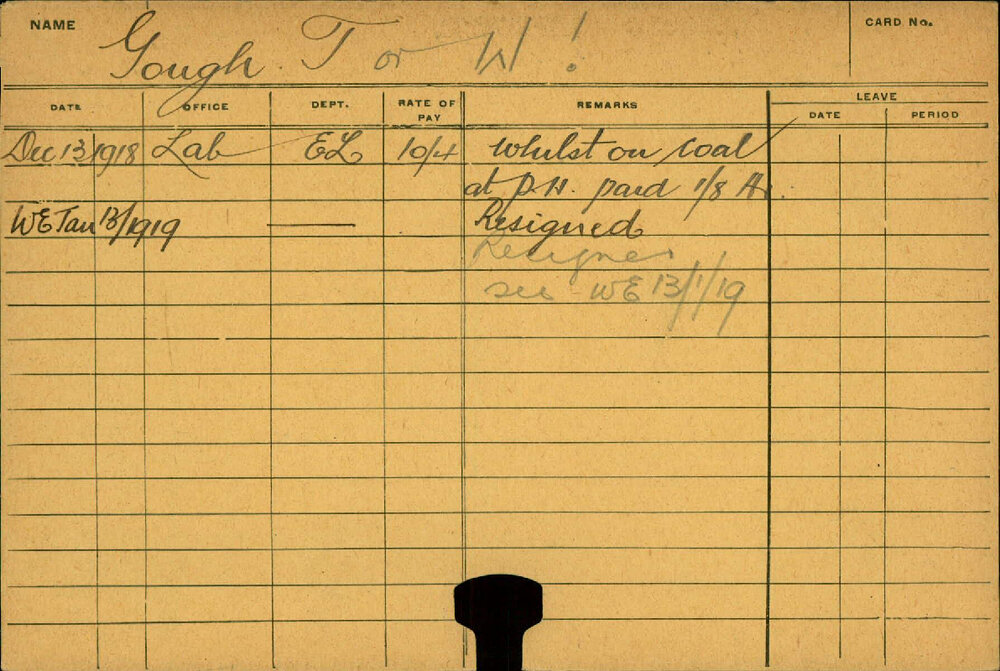 NAME Gough. T or W ! CARD No.
DATE OFFICE DEPT. RATE OF PAY REMARKS LEAVE
DATE PERIOD
Dec 13/1918 Lab EL 10/4 Whilst on coal
at P.H. paid 1/8 Hr.
WE Jan 13/1919 — Resigned
Resigned
see - WE 13/1/19